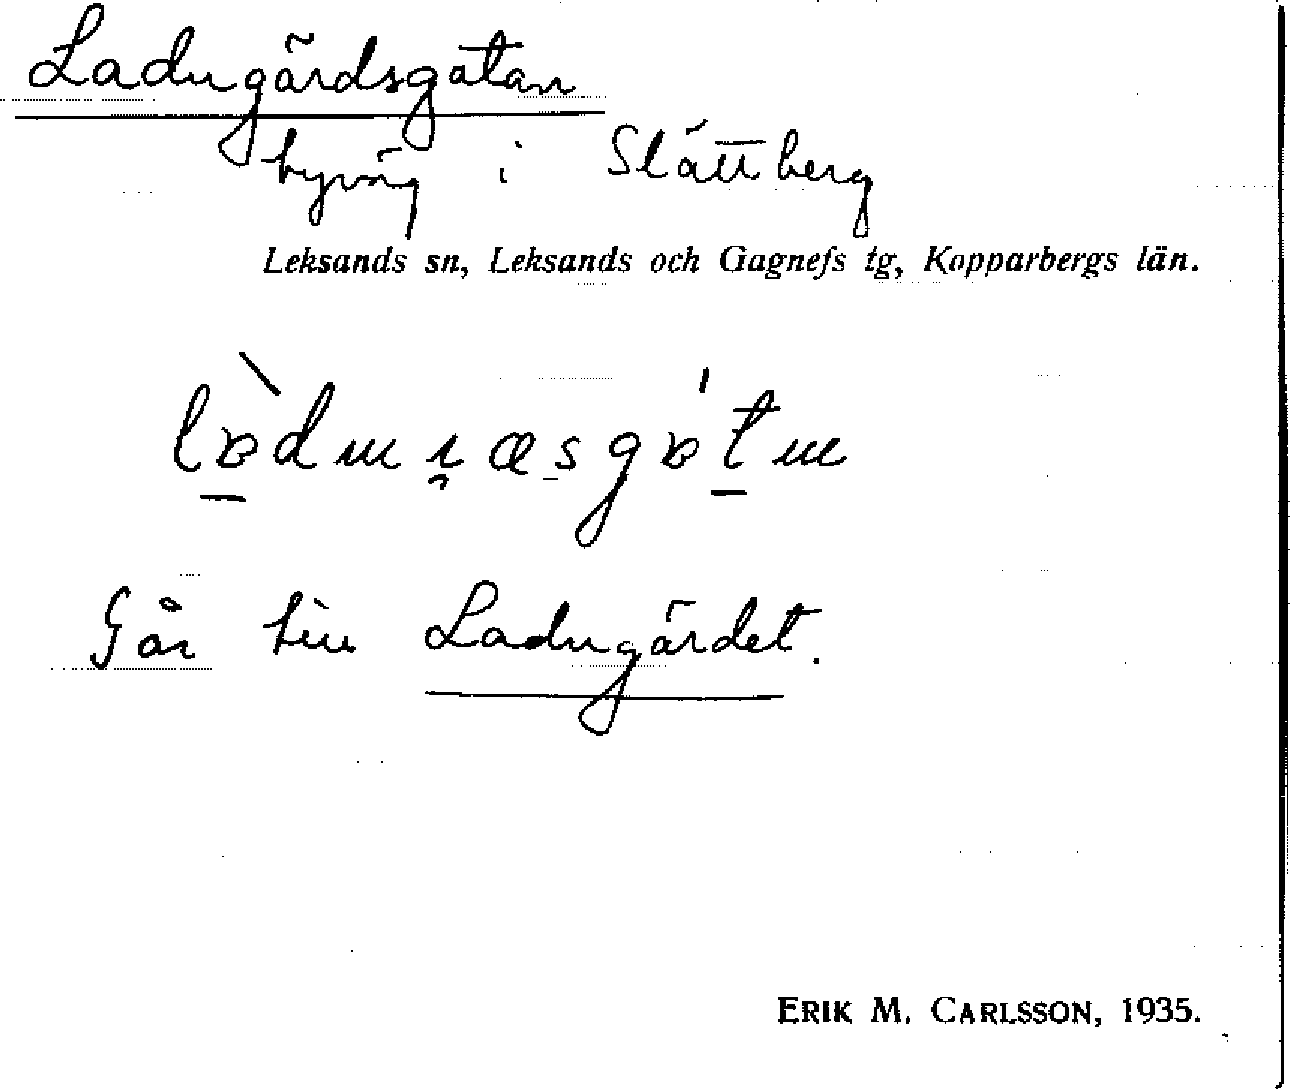 Ladugårdsgatan
byväg i Slättberg
Leksands sn, Leksands och Gagnefs tg, Kopparbergs län.
Går till Ladugärdet.
ERIK M. CARLSSON, 1935.